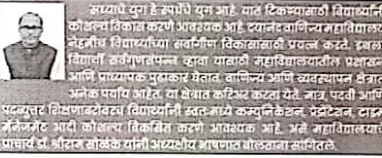 सध्याचे युग हे स्पर्धेचे युग आहे. यात टिकण्यासाठी विद्यार्थ्यांनी
कौशल्य विकास करणे आवश्यक आहे. दयानंद वाणिज्य महाविद्यालय
नेहमीच विद्यार्थ्यांच्या सर्वांगीण विकासासाठी प्रयत्न करते.
विद्यार्थी सर्वगुणसंपन्न व्हावा यासाठी महाविद्यालयातील प्रशासन
आणि प्राध्यापक पुढाकार घेतात. वाणिज्य आणि व्यवस्थापन क्षेत्रात
अनेक पर्याय आहेत. या क्षेत्रात करिअर करता येते. मात्र, पदवी आणि
पदव्युत्तर शिक्षणाबरोबरच विद्यार्थ्यांनी स्वतःमध्ये कम्युनिकेशन, प्रझेंटेशन, टाइम
मॅनेजमेंट आदी कौशल्य विकसित करणे आवश्यक आहे. असे महाविद्यालयाचे
प्राचार्य डॉ. श्रीराम सोळंके यांनी अध्यक्षीय भाषणात बोलताना सांगितले.